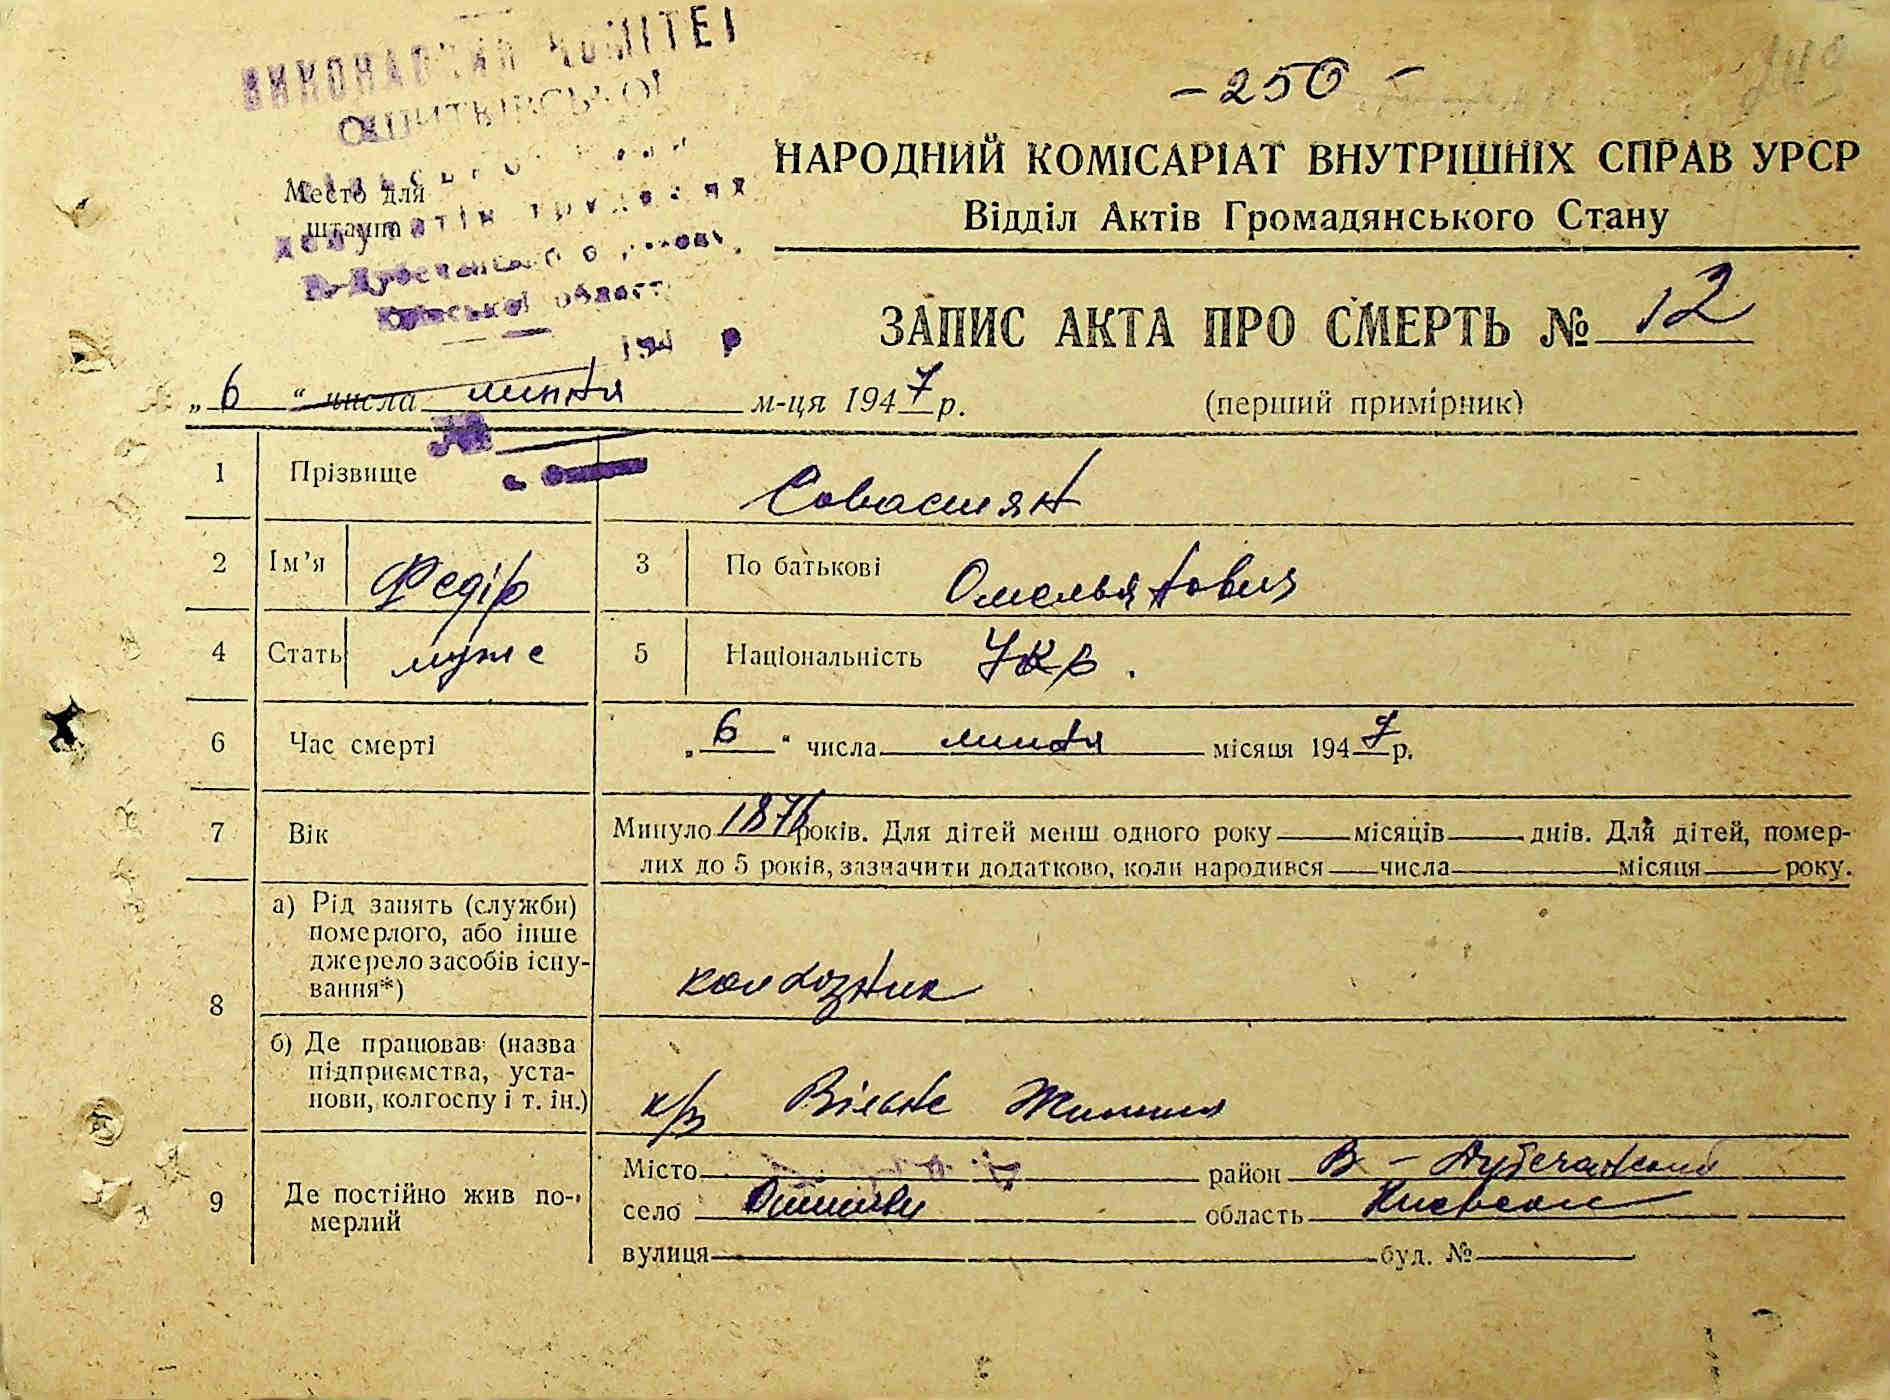 ВИКОНАВЧИЙ КОМІТЕТ
ОШИТКІВСЬКОЇ
- 250 -
Место для
штампа
депутатів трудящих
В-Дубечанського району
Київської області
194 р
НАРОДНИЙ КОМІСАРІАТ ВНУТРІШНІХ СПРАВ УРСР
Відділ Актів Громадянського Стану
ЗАПИС АКТА ПРО СМЕРТЬ № 12
„ 6 “ числа липня м-ця 1947 р.
(перший примірник)
1 Прізвище Совастян
2 Ім'я Федір 3 По батькові Омельянович
4 Стать муже 5 Національність Укр.
6 Час смерті „ 6 “ числа липня місяця 1947 р.
7 Вік Минуло 1876 років. Для дітей менш одного року місяців днів. Для дітей, помер-
лих до 5 років, зазначити додатково, коли народився числа місяця року.
8 а) Рід занять (служби)
померлого, або інше
джерело засобів існу-
вання*)
колхозник
б) Де працював (назва
підприємства, уста-
нови, колгоспу і т. ін.)
к/з Вільне Життя
9 Де постійно жив по-
мерлий
Місто район В - Дубечанский
село Ошитки область Киевском
вулиця буд. №